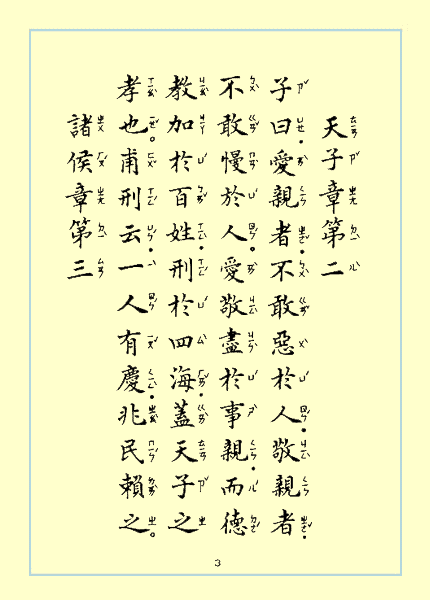 天子章第二
子曰．愛親者．不敢惡於人．敬親者．
不敢慢於人。愛敬盡於事親．而德
教加於百姓．刑於四海．蓋天子之
孝也。甫刑云．一人有慶．兆民賴之。
諸侯章第三
3